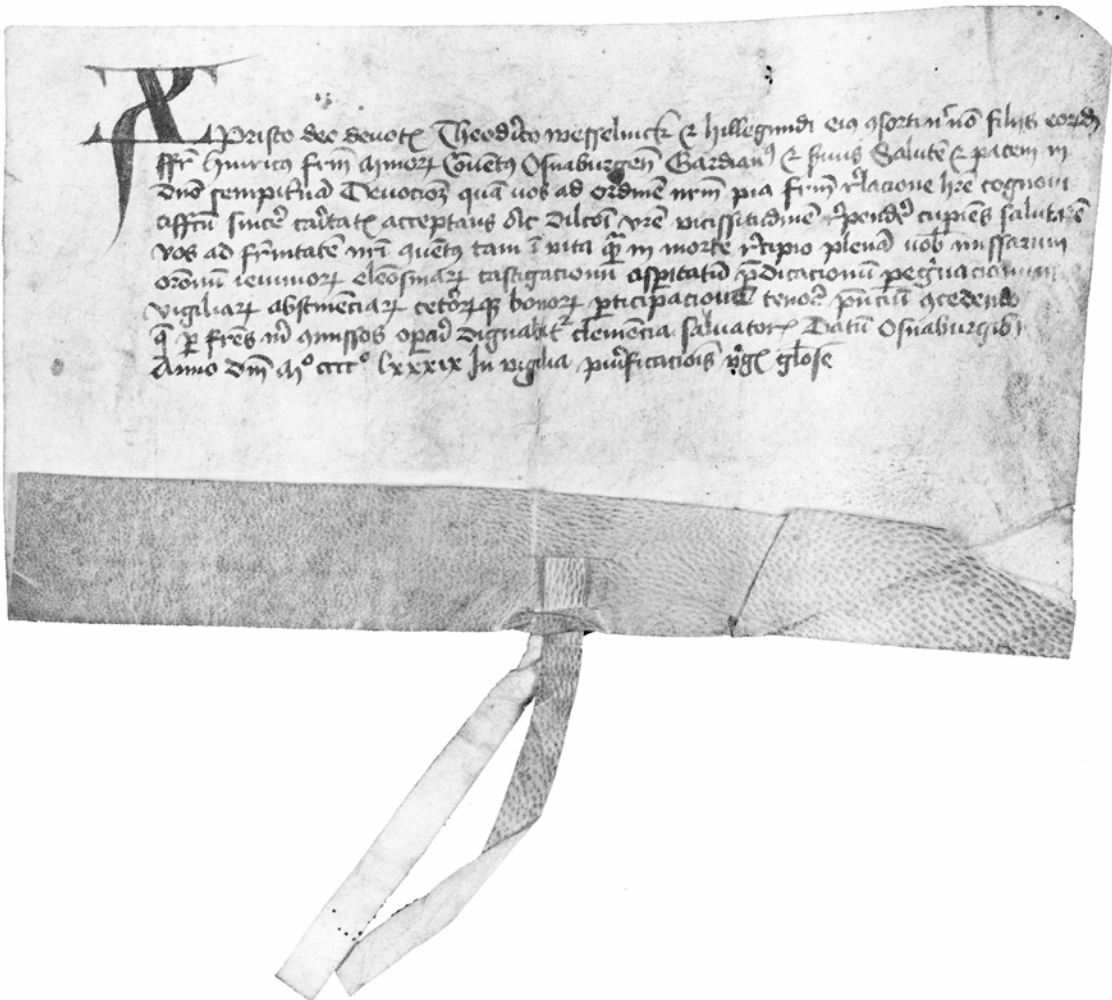 Xpristo deo devotꝭ Theoderico wesselinck ⁊ hillegundi eiꝰ ꝯsorti nͨ nō filijs eorūd
ffrͬ hinricꝰ frm̄ minorꝝ Cōuentꝰ Osnaburgen̄ Gardianꝰ ⁊ ſeruus Salutē ⁊ pacem in
dn̄o sempit̕nā Deuocioꝫ quā vos ad ordinē nr̄m pia frm̄ r̕lacione hr̄e cognoui
affcū sincer̕ caritatꝭ acceptans Ac dilcōi vr̄e vicissitudinē r̕pender̕ cupiens salutarē
vos ad frn̄itatē nr̄i ꝯuentꝰ tam ī vita qͣꝫ in morte r̕cipio plenā vob̄ missarum
or̄onū ieiuniorꝝ eleōsinarꝝ castigacionū asperitatū p̄dicacionū peregͥnacionum
vigiliarꝝ abstinēciarꝝ cetero̕rꝝqꝫ bonorꝝ ꝑticipacionē tenor̕ pn̄ciū ꝯcedendo
q̄ ꝑ fr̄es nr̄os ꝯmissos opari dignabit᷑ clemēcia saluatorꝭ Datū Osnaburgis
Anno dn̄i Mͦ ccccͦ lxxxix In vigilia purificaciōis v̕gꝭ glōse